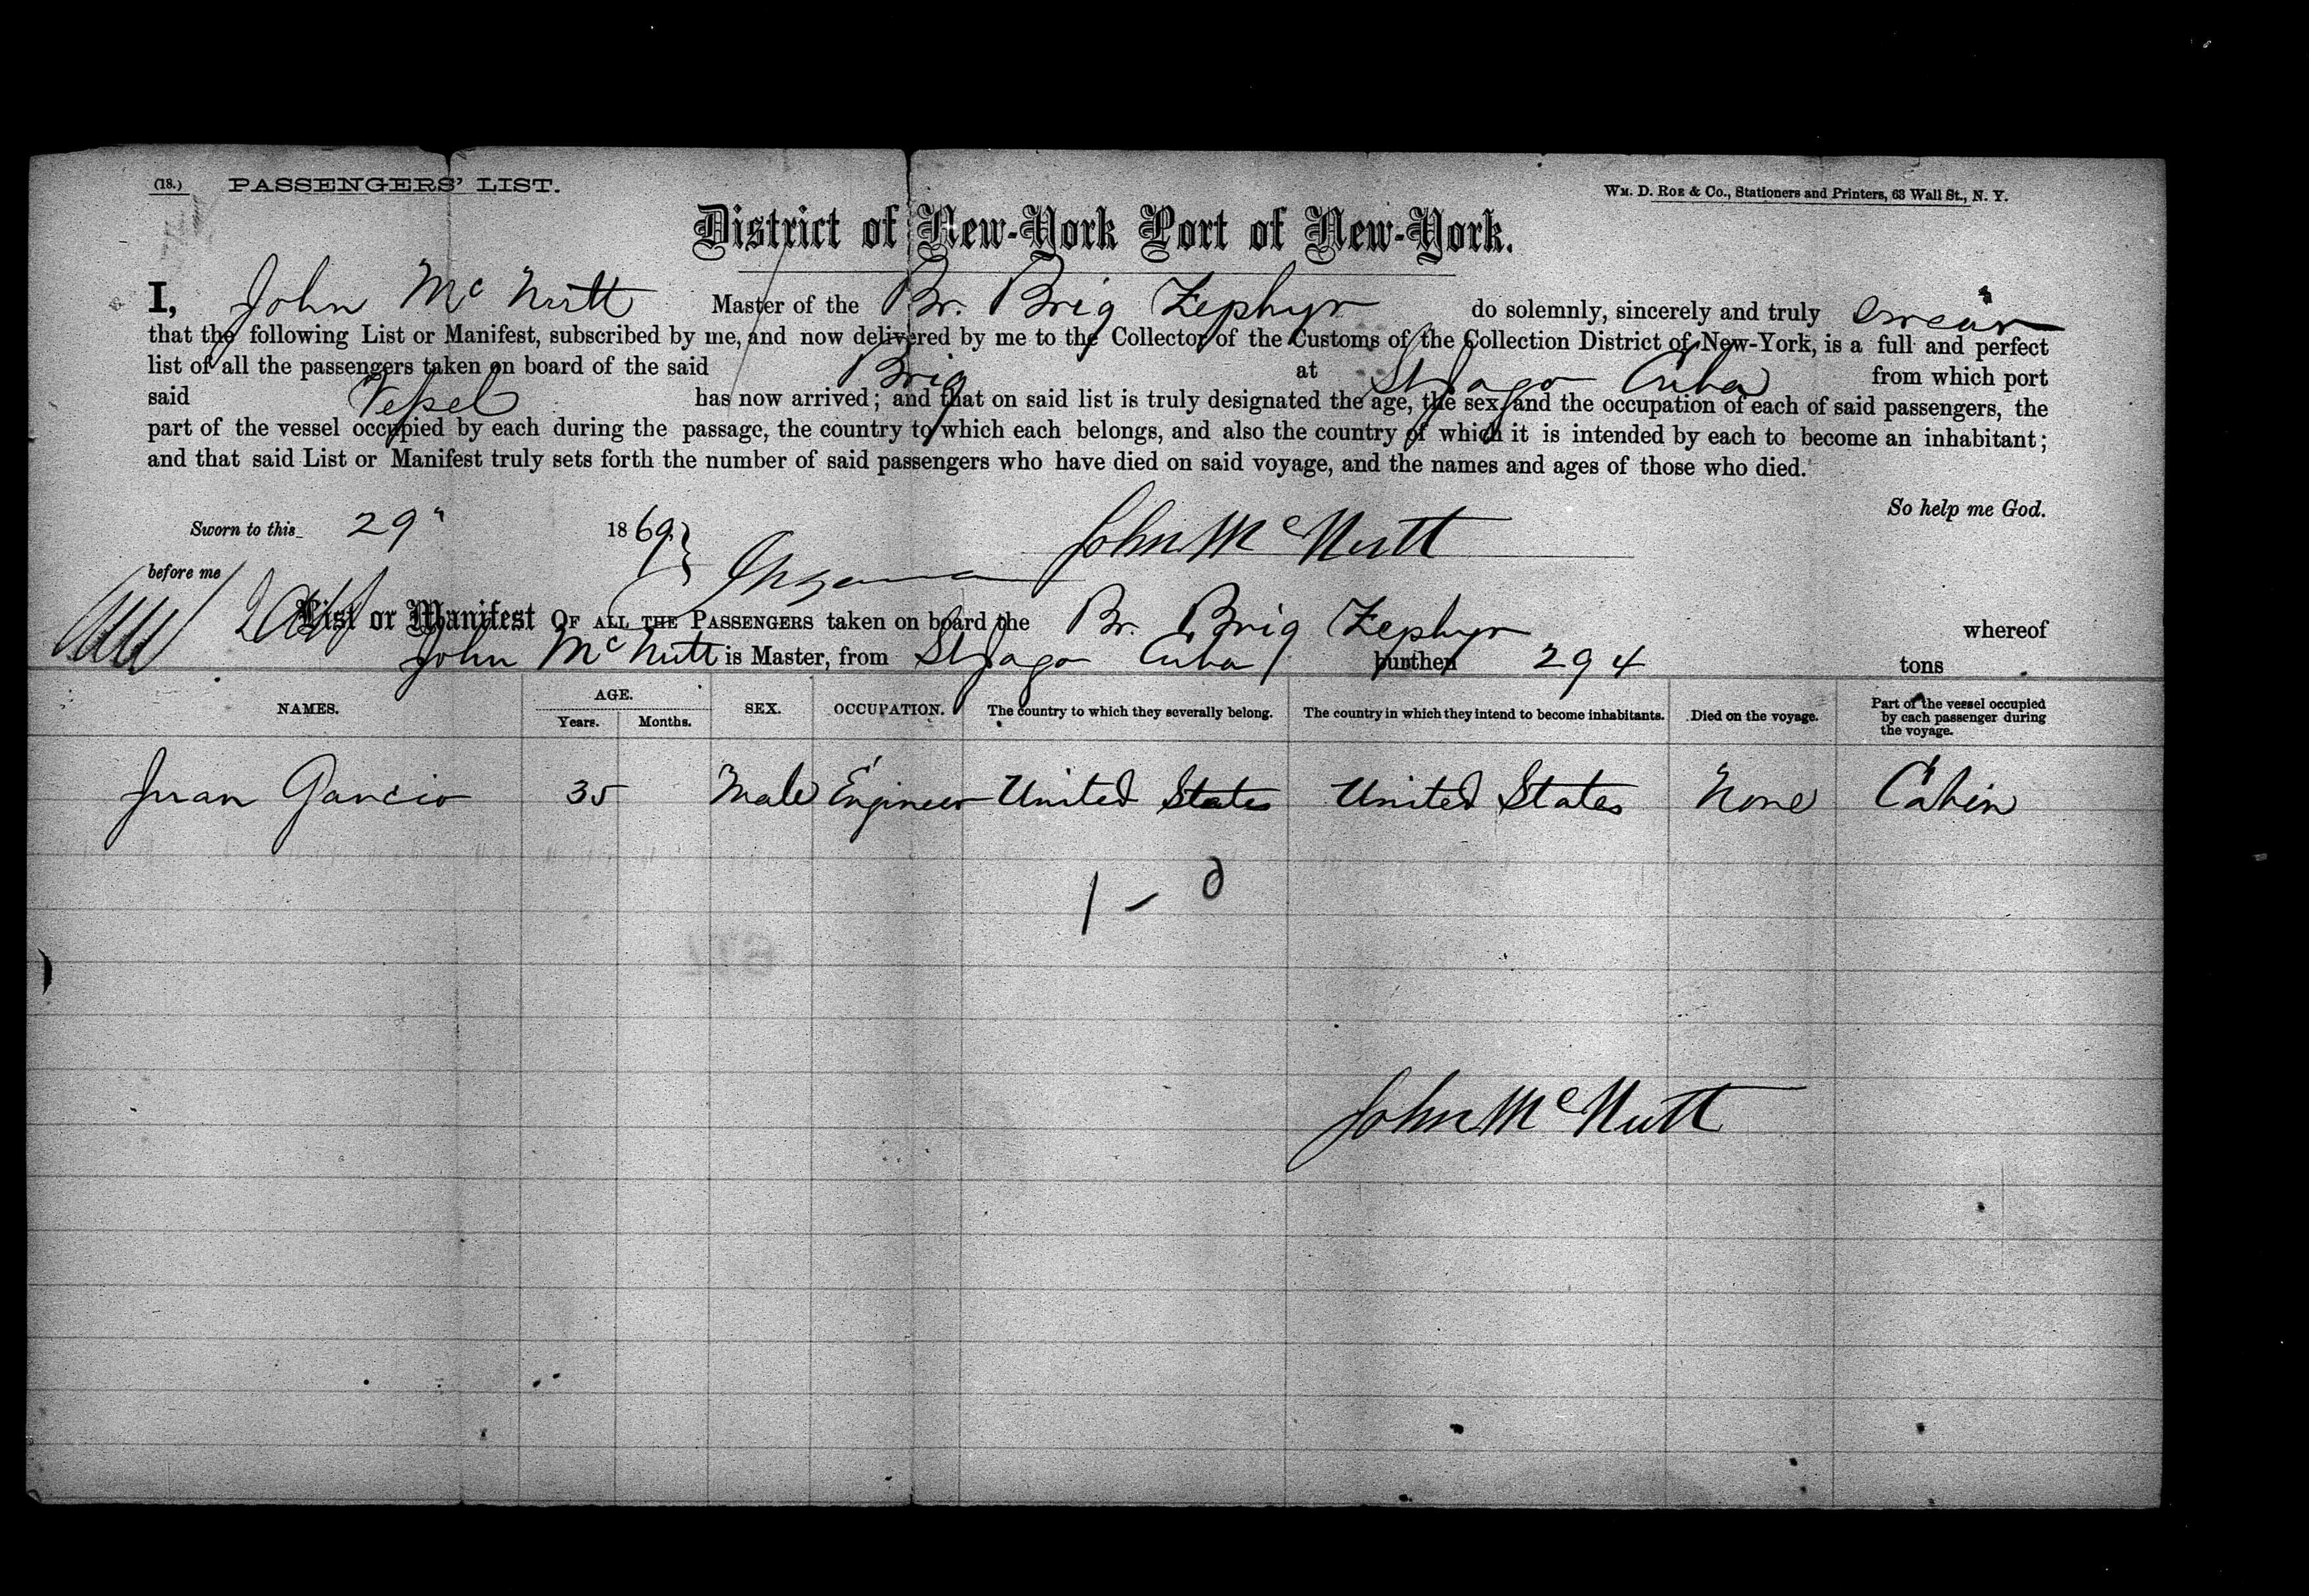 (18.) PASSENGERS' LIST. WM. D. ROE & Co., Stationers and Printers, 63 Wall St., N. Y.
District of New-York Port of New-York.
I, John McNutt Master of the Br. Brig Zephyr do solemnly, sincerely and truly swear
that the following List or Manifest, subscribed by me, and now delivered by me to the Collector of the Customs of the Collection District of New-York, is a full and perfect
list of all the passengers taken on board of the said Brig at St Jago Cuba from which port
said Vessel has now arrived; and that on said list is truly designated the age, the sex, and the occupation of each of said passengers, the
part of the vessel occupied by each during the passage, the country to which each belongs, and also the country of which it is intended by each to become an inhabitant;
and that said List or Manifest truly sets forth the number of said passengers who have died on said voyage, and the names and ages of those who died.
So help me God.
Sworn to this 29" 1869 John McNutt
before me
List or Manifest OF ALL THE PASSENGERS taken on board the Br. Brig Zephyr whereof
John McNutt is Master, from St Jago Cuba burthen 294 tons
NAMES. AGE. Years. Months. SEX. OCCUPATION. The country to which they severally belong. The country in which they intend to become inhabitants. Died on the voyage. Part of the vessel occupied by each passenger during the voyage.
Juan Garcio 35 Male Engineer United States United States None Cabin
1 -
John McNutt